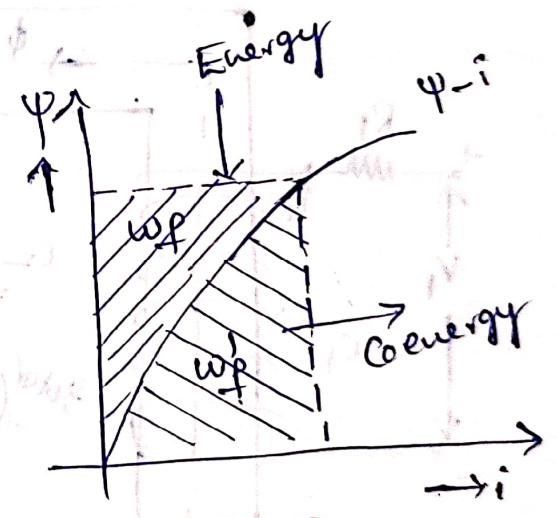 Energy
ψ
ψ-i
Wf
Coenergy
Wf'
i